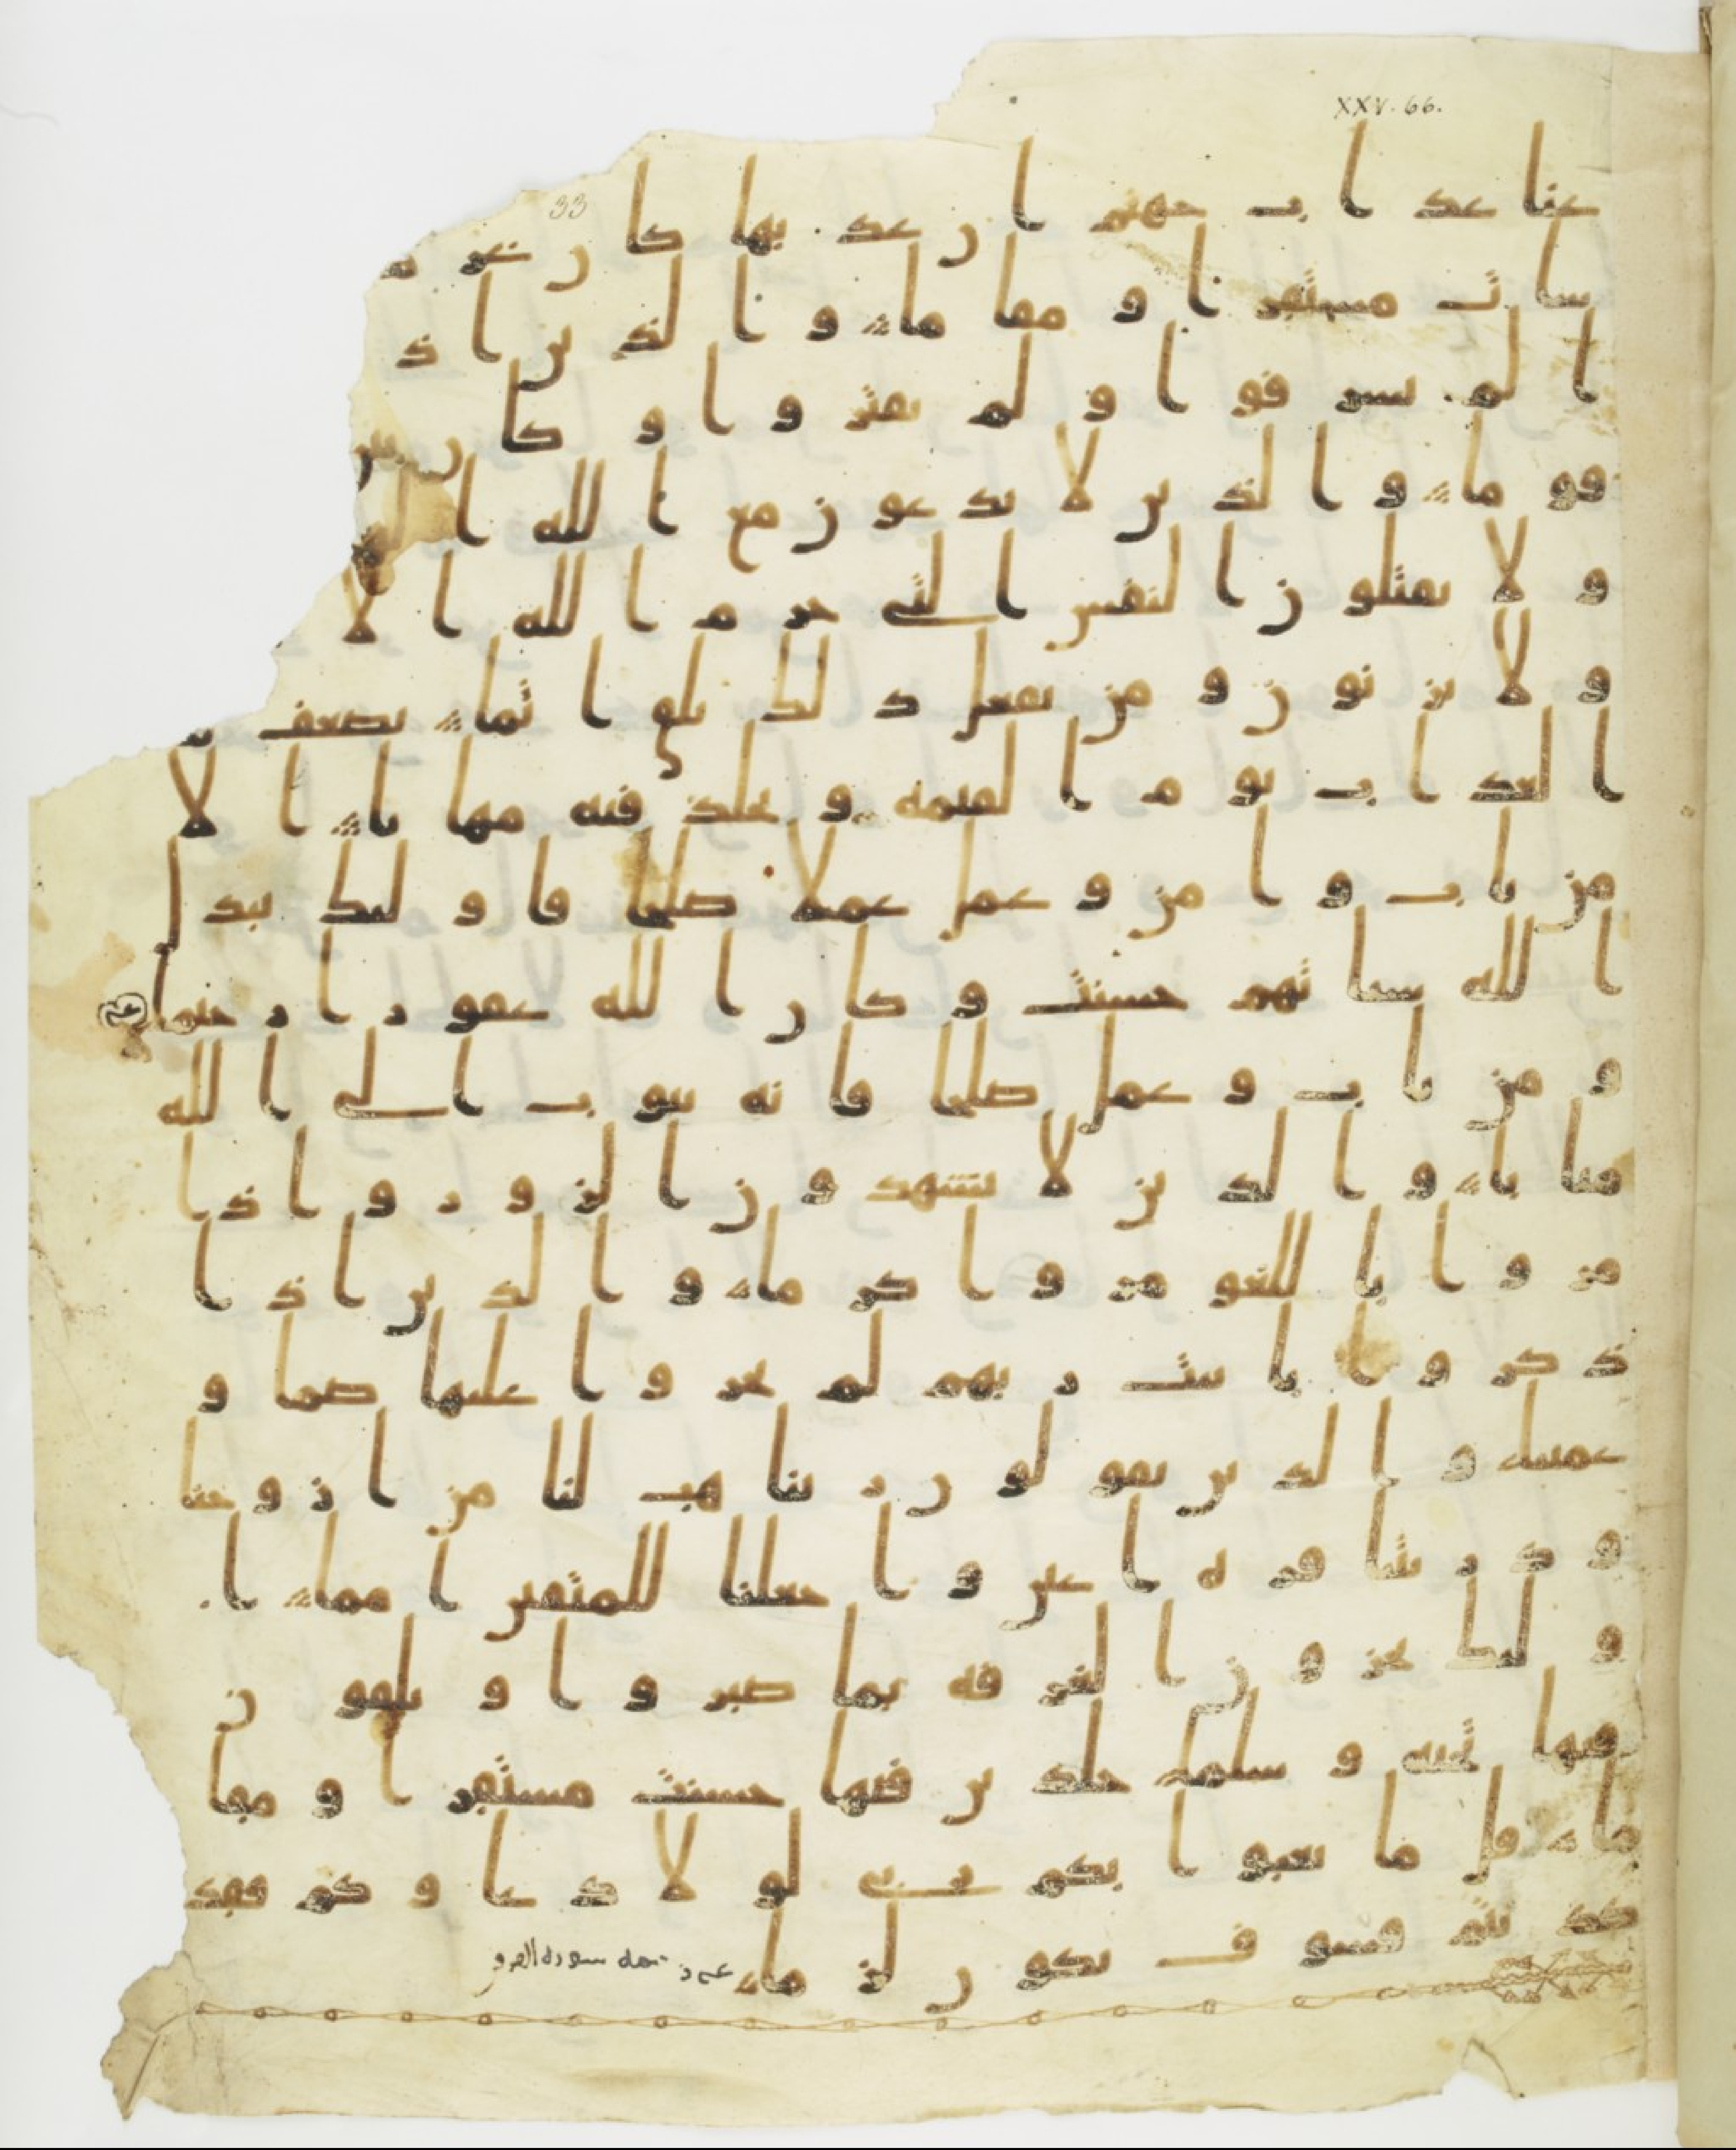 XXV. 66.
33
عنا عذاب جهنم ان عذبها كان غر م
سات مستقرا ومقاما والذين اذ
ا لم يسرفوا ولم يقتروا وكان بين
قوما والذين لا يدعون مع الله ا
ولا يقتلون النفس التي حرم الله الا
ولا يزنون ومن يفعل ذلك يلق اثاما يضعف
العذاب يوم القيمه ويخلد فيه مهانا الا
من تاب وامن وعمل عملا صلحا فاولئك يبدل
الله سياتهم حسنت وكان الله غفورا رحيما
ومن تاب وعمل صلحا فانه يتوب الى الله
متابا والذين لا يشهدون الزور واذا
مروا باللغو مروا كرما والذين اذا
ذكروا بايت ربهم لم يخروا عليها صما و
عمينا والذين يقولون ربنا هب لنا من ازوجنا
وذريتنا قره اعين واجعلنا للمتقين امما ا
ولئك يجزون الغرفه بما صبروا ويلقون
فيها تحيه وسلما خلدين فيها حسنت مستقرا ومقا
ما قل ما يعبوا بكم ربي لولا دعاوكم فقد
كذبتم فسوف يكون لزما سوره الفر